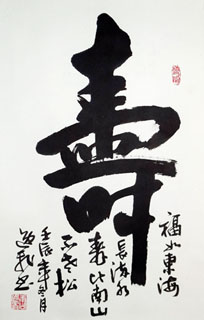 壽
福如東海
長流水
壽比南山
不老松
壬辰年